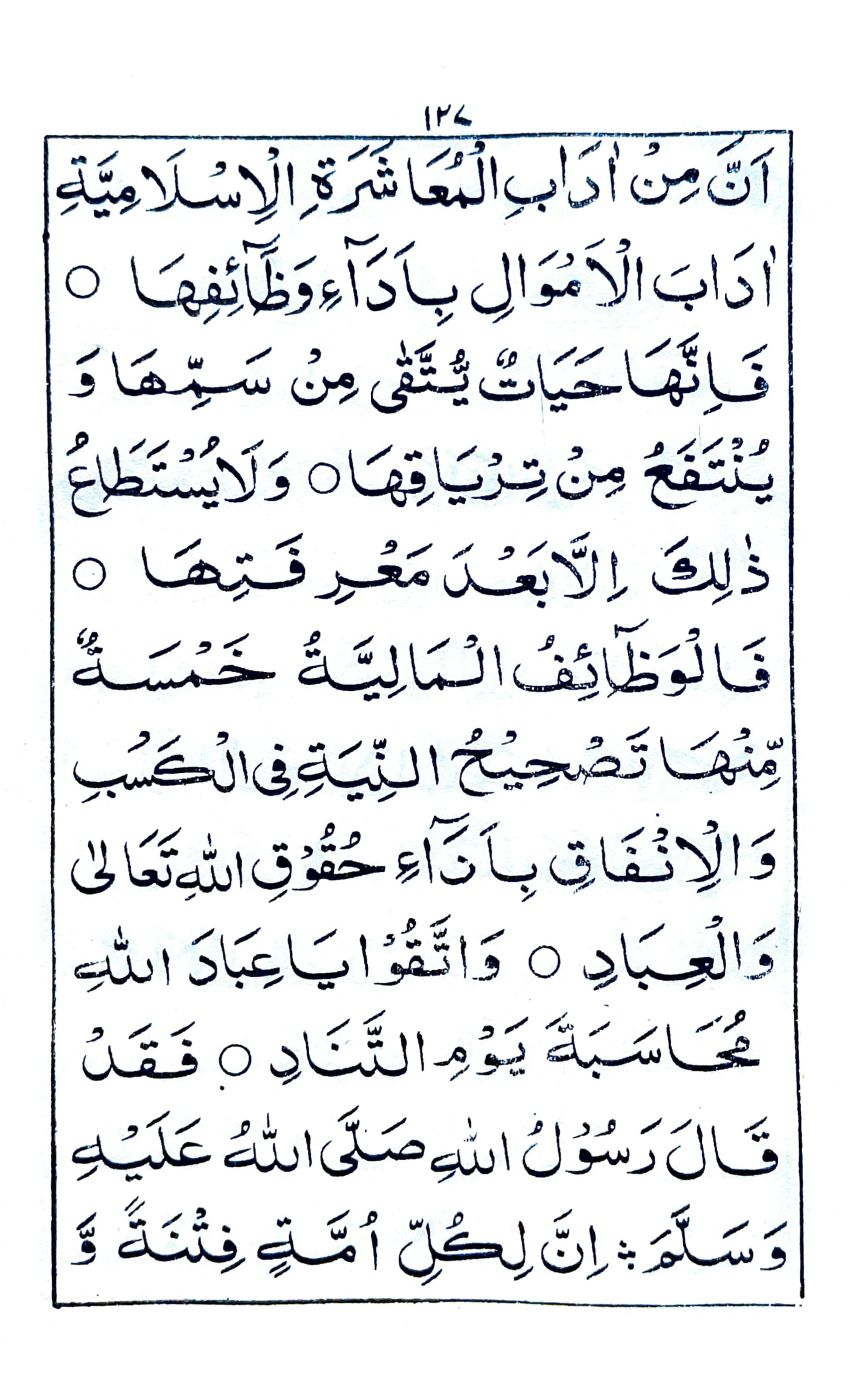 ١٢٧
اَنَّ مِنْ اٰدَابِ الْمُعَاشَرَةِ الْاِسْلَامِيَّةِ
اٰدَابَ الْاَمْوَالِ بِاَدَآءِ وَظَآئِفِهَا ○
فَاِنَّهَا حَيَاتٌ يُّتَّقٰى مِنْ سَمِّهَا وَ
يُنْتَفَعُ مِنْ تِرْيَاقِهَا ○ وَلَا يُسْتَطَاعُ
ذٰلِكَ اِلَّا بَعْدَ مَعْرِفَتِهَا ○
فَالْوَظَآئِفُ الْمَالِيَّةُ خَمْسَةٌ
مِّنْهَا تَصْحِيْحُ النِّيَةِ فِى الْكَسْبِ
وَالْاِنْفَاقِ بِاَدَآءِ حُقُوْقِ اللّٰهِ تَعَالٰى
وَالْعِبَادِ ○ وَاتَّقُوْا يَا عِبَادَ اللّٰهِ
مُحَاسَبَةَ يَوْمِ التَّنَادِ ○ فَقَدْ
قَالَ رَسُوْلُ اللّٰهِ صَلَّى اللّٰهُ عَلَيْهِ
وَسَلَّمَ ؞ اِنَّ لِكُلِّ اُمَّةٍ فِتْنَةً وَّ